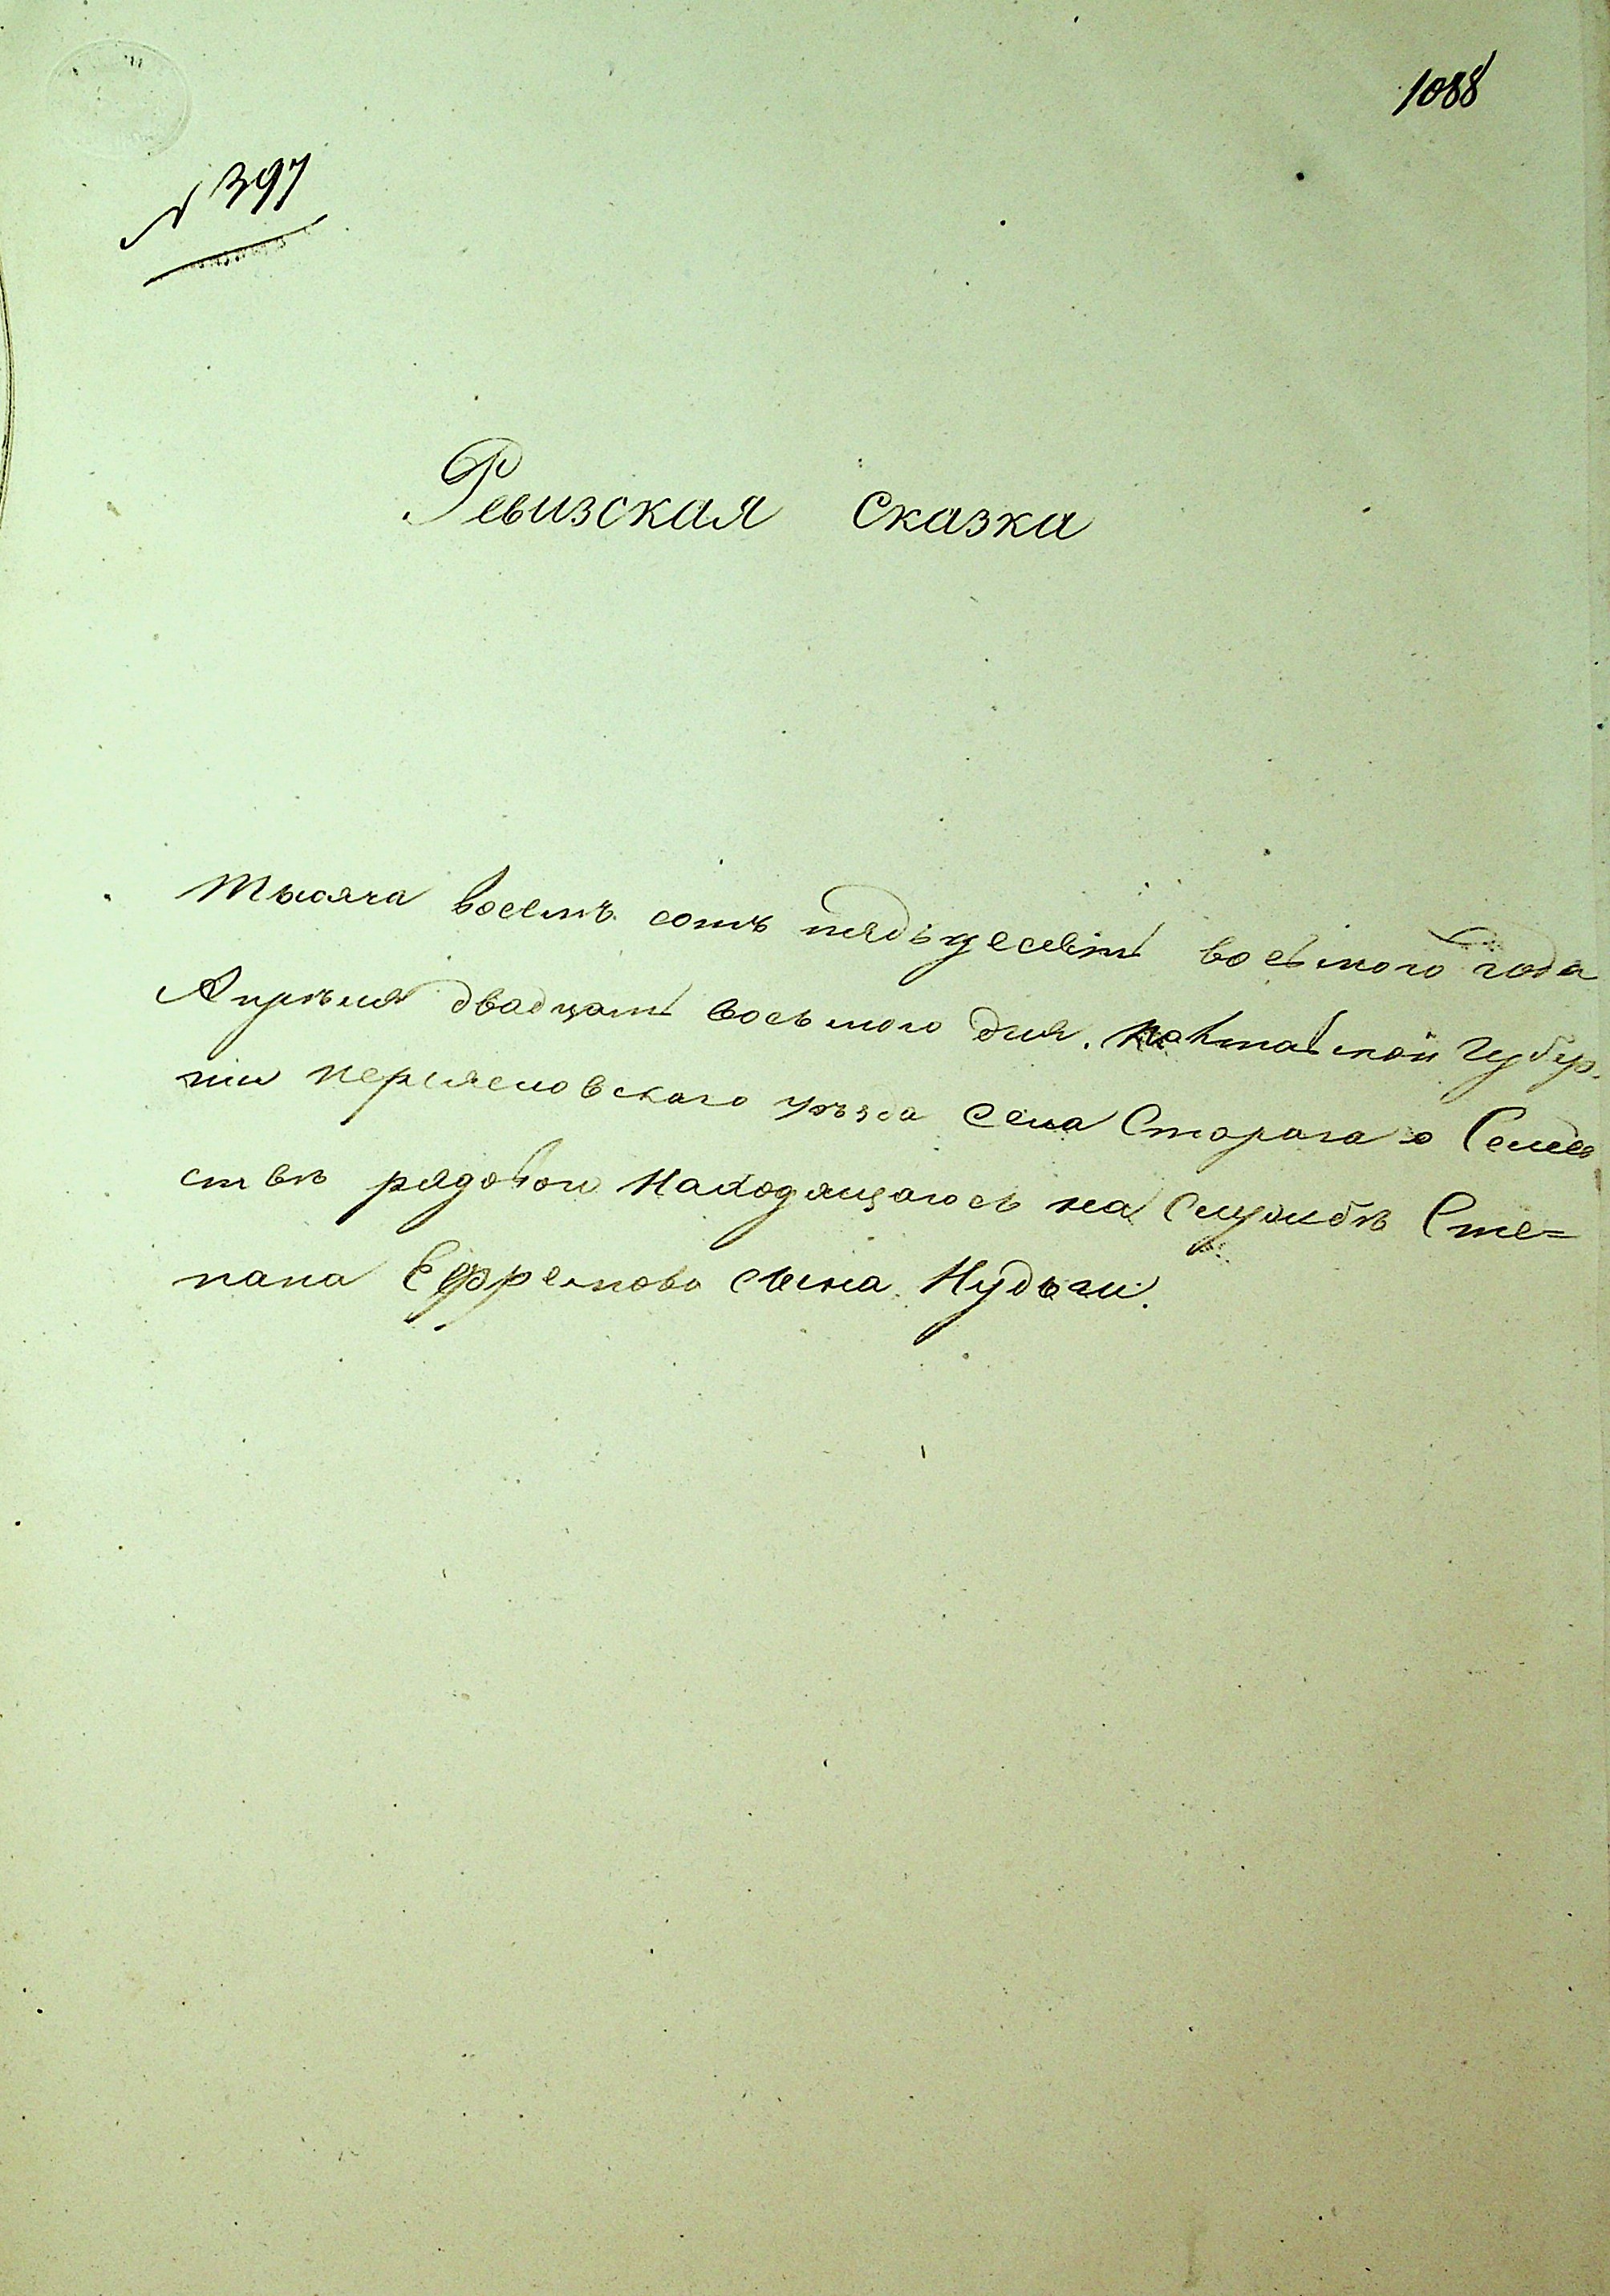 1088
№ 397
Ревизская сказка
Тысяча восемъ сотъ пядьдесеть восьмого года
Апрѣля двадцать восьмого дня. Полтавской Губер.
нии Переяславского уѣзда села Старого о Семей
ствѣ рядового находящагось на Службѣ Сте=
пана Ефремова сына Нудьги.